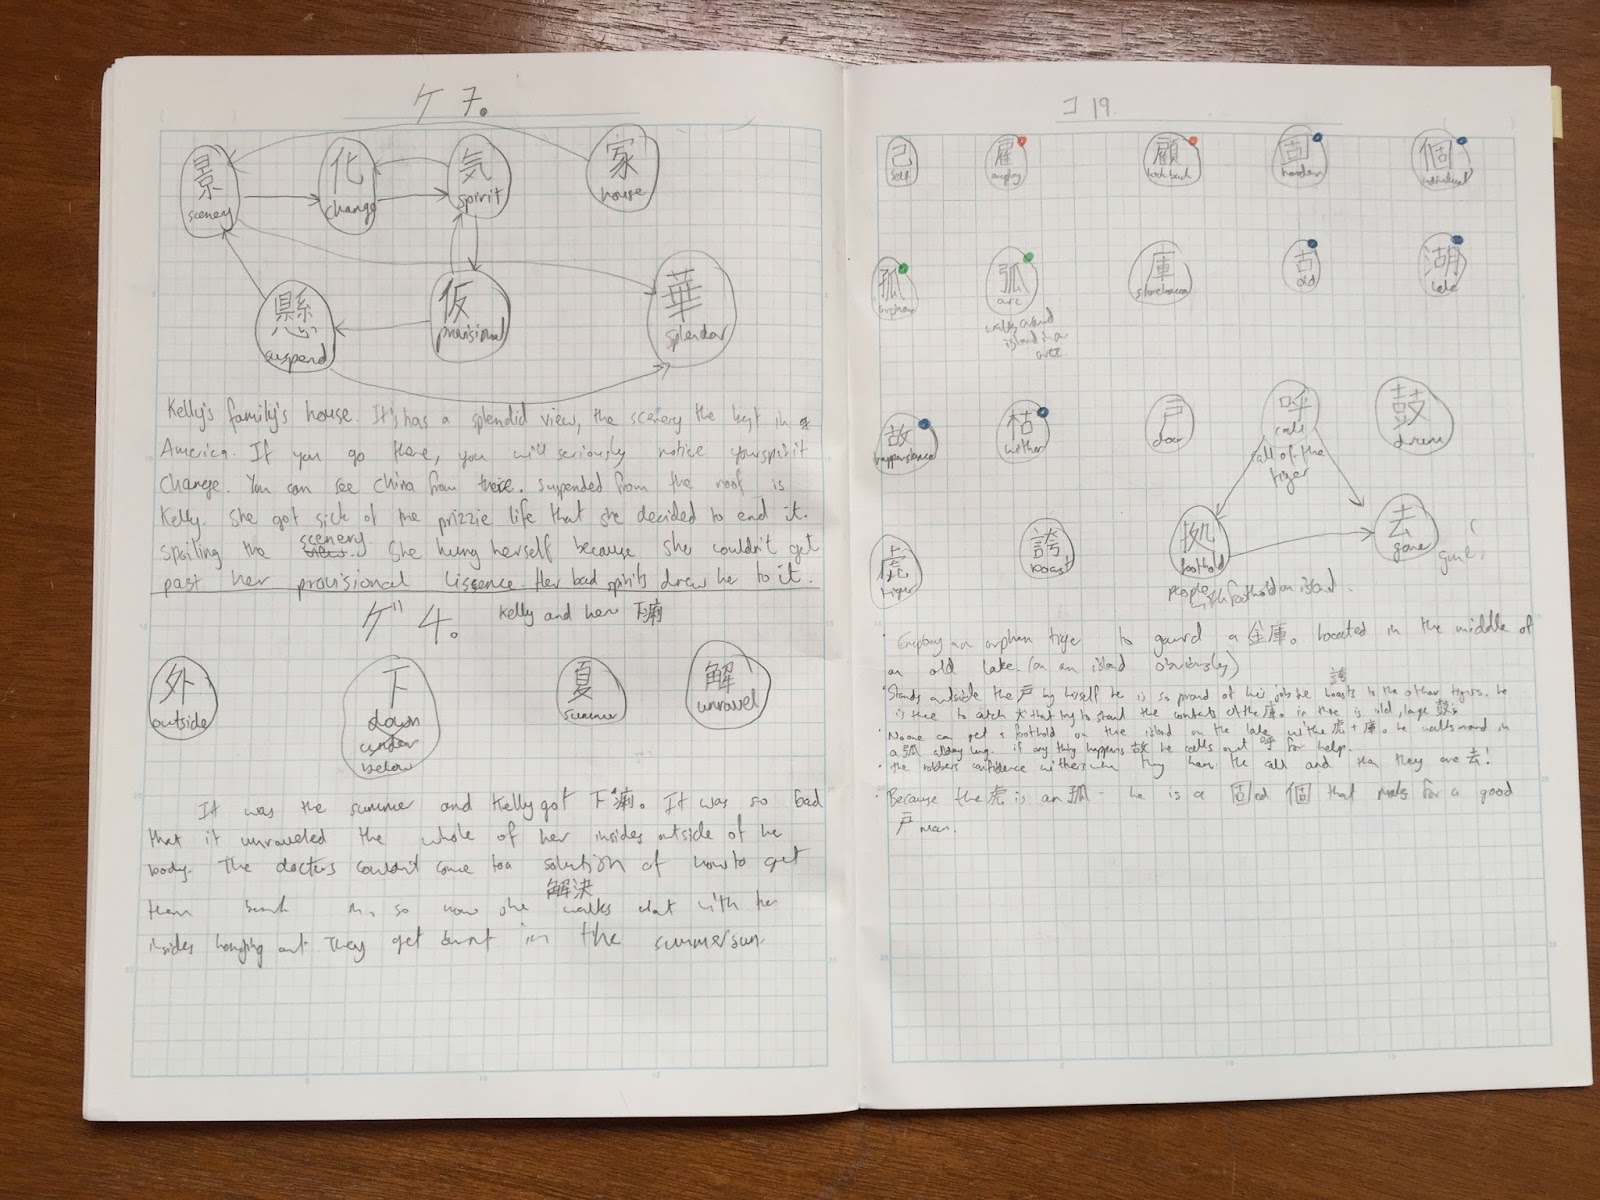 ケ 7.
景 化 気 家
scenery change spirit house
懸 仮 華
suspend provisional splendor
Kelly's family's house. It's has a splendid view, the scenery the best in
America. If you go there, you will seriously notice your spirit
change. You can see China from there. suspended from the roof is
Kelly. She got sick of the life that she decided to end it.
spoiling the scenery She hung herself because she couldn't get
past her provisional lissence. Her bad spirits drew he to it.
ゲ 4. Kelly and her 下痢
外 下 夏 解
outside down summer unravel
under
below
It was the summer and Kelly got 下痢。It was so bad
that it unraveled the whole of her insides outside of he
body. The doctors couldn't come to a solution of how to get
解決
them in, so now she walks with her
insides hanging out. They get burnt in the summer sun
コ 19.
己 雇 顧 固 個
self employ look back harden individual
孤 弧 庫 古 湖
orphan arc storehouse old lake
walks around
island in an
故 枯 戸 呼 鼓
happenstance wither door call drum
call of the
tiger
虎 誇 拠 去
tiger boast foothold gone
people
with foothold on island.
Employ an orphan tiger to guard a 金庫。located in the middle of
an old lake. (on an island obviously)
誇
・Stands outside the 戸 by himself he is so proud of his job he boasts to the other tigers. he
is there to catch that try to the contents of the 庫. in there is old, large 鼓s
・No one can get a foothold on the island on the lake with the 虎 + 庫. he walks round in
a 弧 all day long. if any thing happens 故 he calls out 呼 for help.
・the robbers confidence withers when they hear the call and then they are 去!
・Because the 虎 is an 孤 - he is a 固ed 個 that for a good
戸 man.